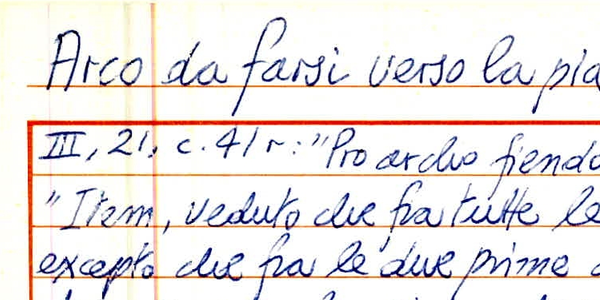 Arco da farsi verso la pia
III, 21, c. 41 r: "Pro archo fiendo
"Item, veduto che fra tutte le
excepto che fra le due prime